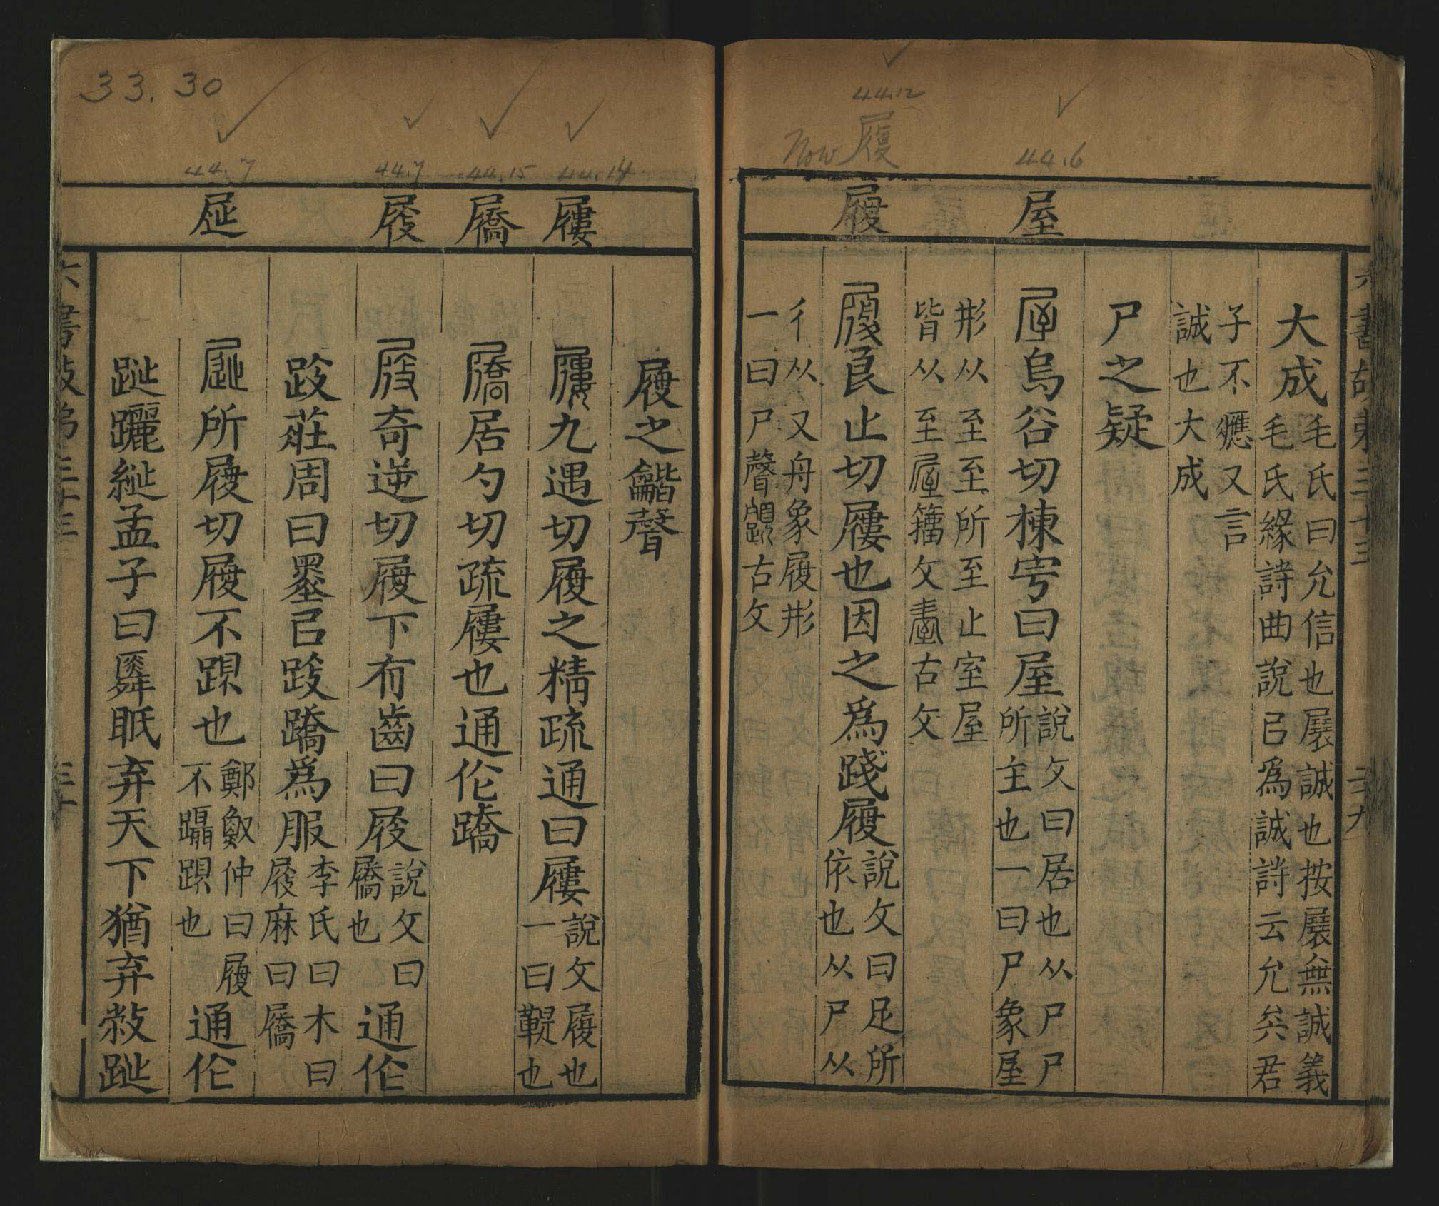 44.12
Now 履
44.6
屋
履
大成毛氏曰允信也展誠也按展無誠義
毛氏緣詩曲說㠯為誠詩云允矣君
子不癮又言
誠也大成
尸之疑
烏谷切棟宇曰屋說文曰居也从尸尸
所主也一曰尸象屋
形从至至所至止室屋
皆从至籒文古文
良止切屨也因之為踐履說文曰足所
依也从尸从
彳从又舟象履形
一曰尸聲古文
33.30
44.7
44.7
44.15
44.14
屨
屩
屐
屣
履之龤聲
九遇切履之精疏通曰屨說文履也
一曰鞮也
居勺切疏屨也通作蹻
奇逆切履下有齒曰屐說文曰
屩也通作
跂莊周曰墨㠯跂蹻為服李氏曰木曰
屐麻曰屩
所履切履不踶也鄭仲曰履
不躡踶也通作
躧縰孟子曰眡弃天下猶弃
六書故弟三十三
三十